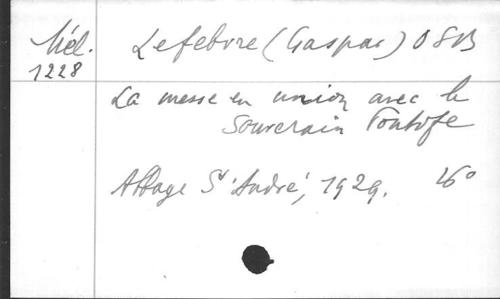 Mél.
1228
Lefebvre (Gaspar) OSB
La messe en union avec le
Souverain Pontife
Abbaye St André, 1929. 16°